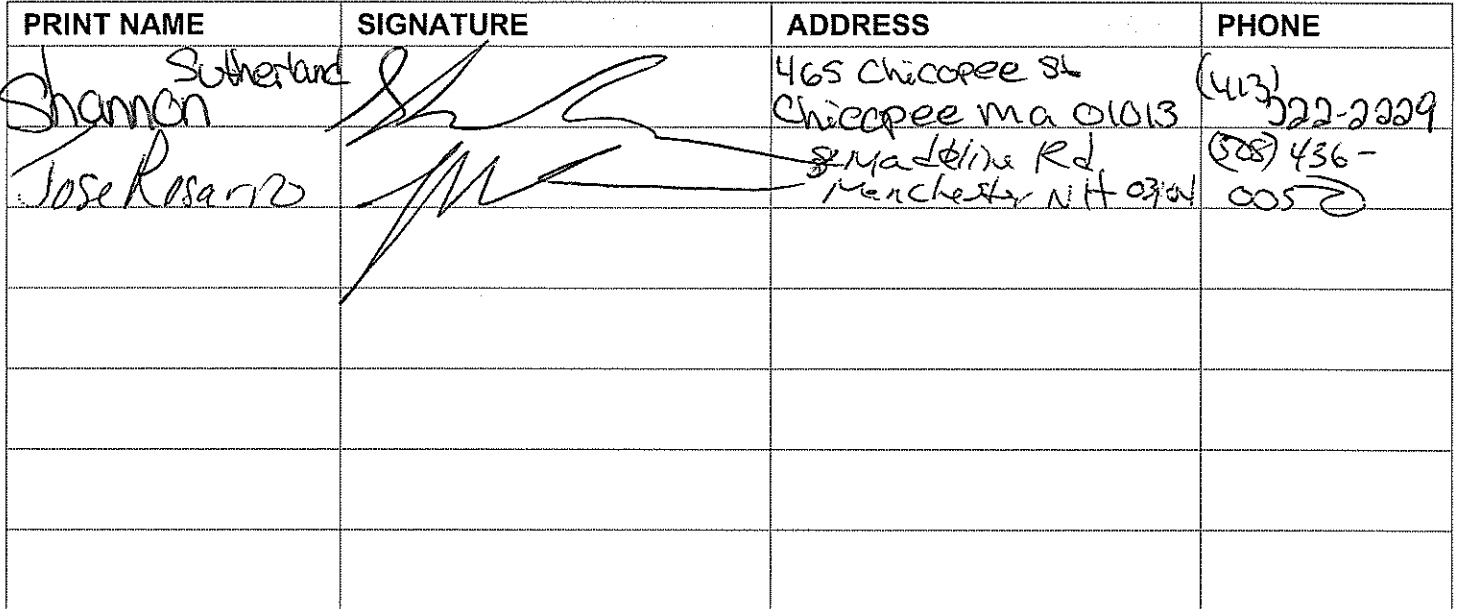 PRINT NAME SIGNATURE ADDRESS PHONE
Sutherland
Shannon
465 Chicopee St
Chicopee Ma 01013
(413)
222-2229
Jose Rosario
Madeline Rd
Manchester NH
(508) 436-